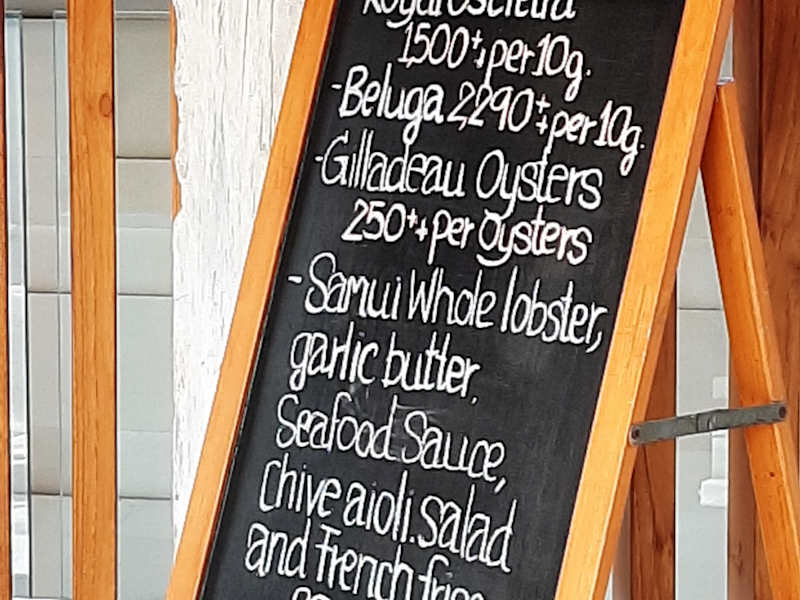 1,500++ per 10g.
- Beluga 2,290++ per 10g.
- Gilladeau Oysters
250++ per Oysters
- Samui Whole lobster,
garlic butter,
Seafood Sauce,
Chive aioli. Salad
and French fries